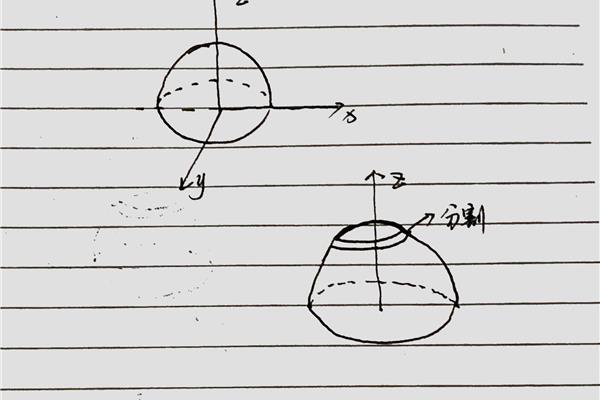 z
x
y
z
分割